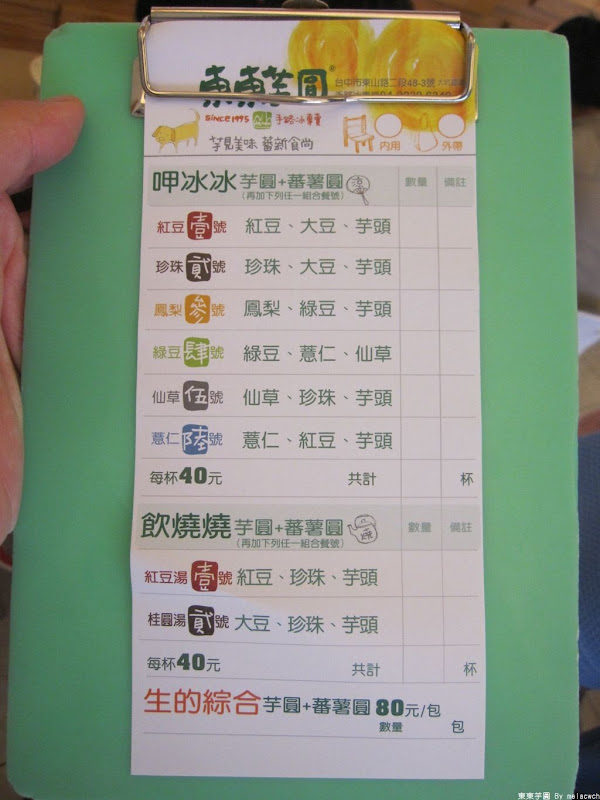 東東芋圓®
台中市東山路二段48-3號
since1995 手路冰專賣
芋見美味 蕃新食尚
內用 外帶
呷冰冰 芋圓+蕃薯圓 數量 備註
(再加下列任一組合餐號)
紅豆壹號 紅豆、大豆、芋頭
珍珠貳號 珍珠、大豆、芋頭
鳳梨參號 鳳梨、綠豆、芋頭
綠豆肆號 綠豆、薏仁、仙草
仙草伍號 仙草、珍珠、芋頭
薏仁陸號 薏仁、紅豆、芋頭
每杯40元 共計 杯
飲燒燒 芋圓+蕃薯圓 數量 備註
(再加下列任一組合餐號)
燒
紅豆湯壹號 紅豆、珍珠、芋頭
桂圓湯貳號 大豆、珍珠、芋頭
每杯40元 共計 杯
生的綜合 芋圓+蕃薯圓 80元/包
數量 包
東東芋圓 By melacwch